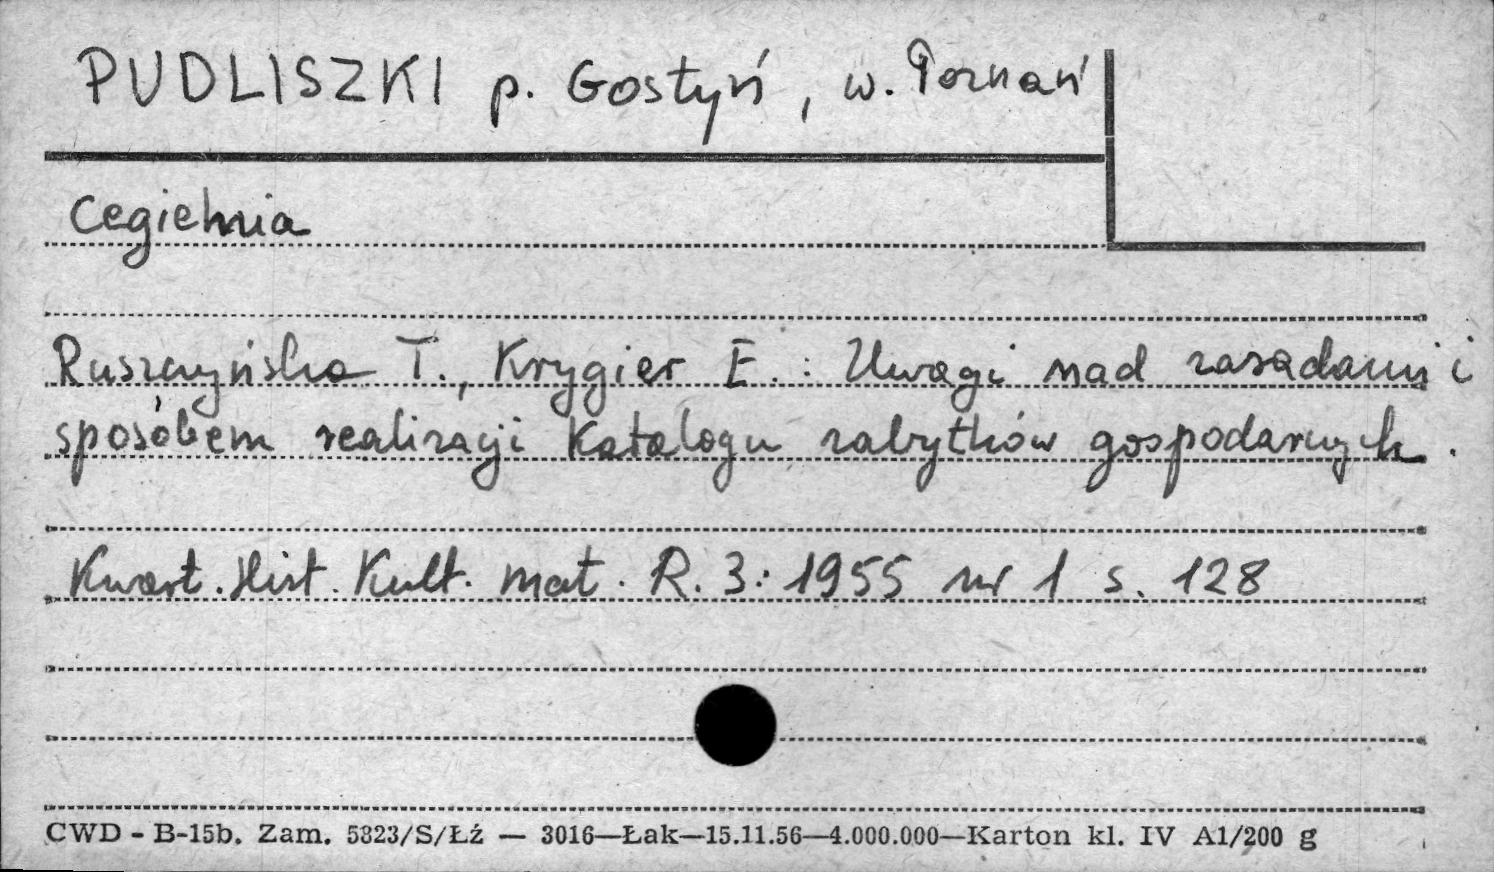 PUDLISZKI p. Gostyń, w. Poznań
Cegielnia
Ruszczyńska T., Krygier E. : Uwagi nad zasadami i
sposobem realizacji Katalogu zabytków gospodarczych.
Kwart. Hist. Kult. mat. R. 3: 1955 nr 1 s. 128
CWD - B-15b. Zam. 5823/S/Łź — 3016—Łak—15.11.56—4.000.000—Karton kl. IV A1/200 g